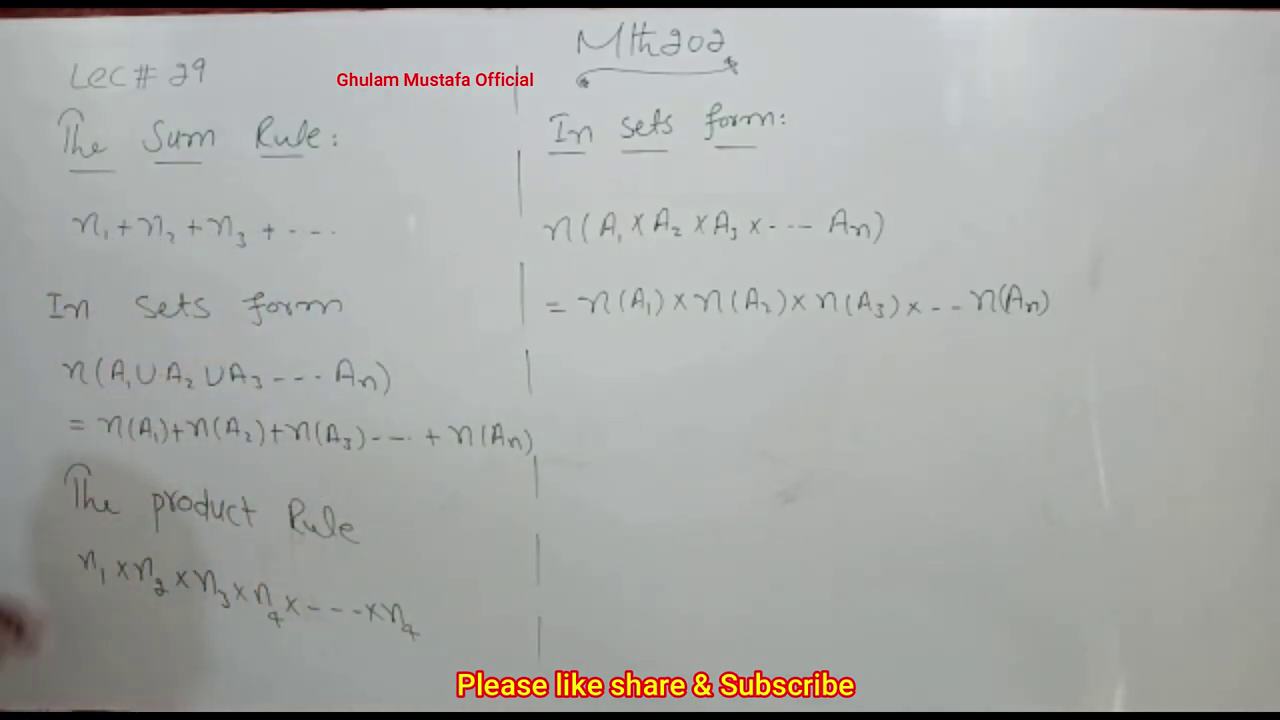 Mth202
Lec # 29
Ghulam Mustafa Official
The Sum Rule:
n₁ + n₂ + n₃ + ----
In sets form
n(A₁ ∪ A₂ ∪ A₃ ---- An)
= n(A₁)+n(A₂)+n(A₃)---- + n(An)
The product Rule
n₁ × n₂ × n₃ × n₄ × ---- × n₄
In sets form:
n(A₁ × A₂ × A₃ × ---- An)
= n(A₁) × n(A₂) × n(A₃) × -- n(An)
Please like share & Subscribe